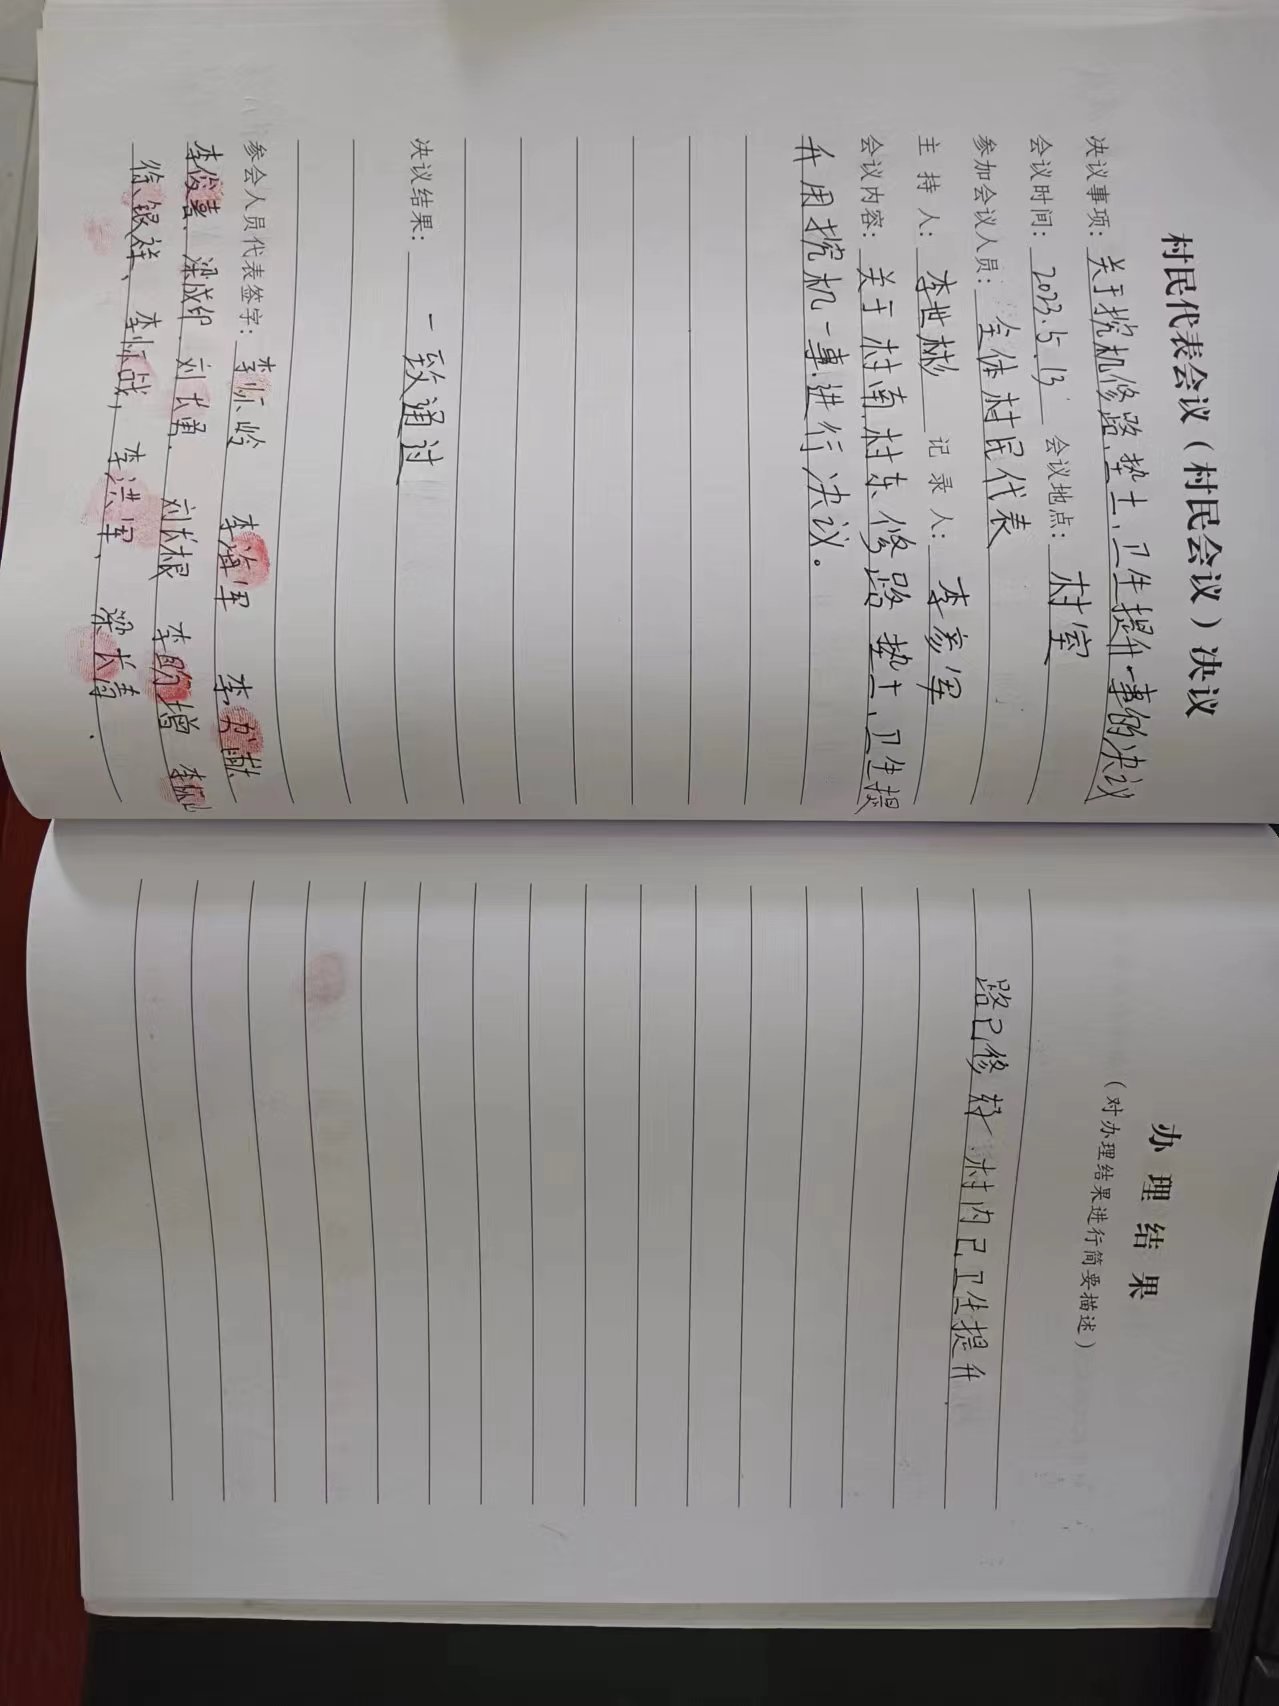 村民代表会议（村民会议）决议
决议事项：关于挖机修路、垫土、卫生提升一事的决议
会议时间：2023.5.13 会议地点：村室
参加会议人员：全体村民代表
主持人：李世彬 记录人：李彦军
会议内容：关于村南.村东.修路 垫土、卫生提
升用挖机一事.进行决议。
决议结果：一致通过
参会人员代表签字：李怀岭 李海军
李俊喜、梁成印.刘长勇.刘长根 李盼增
徐银祥、李怀战，李洪军、梁长清.
办理结果
（对办理结果进行简要描述）
路已修好.村内已卫生提升